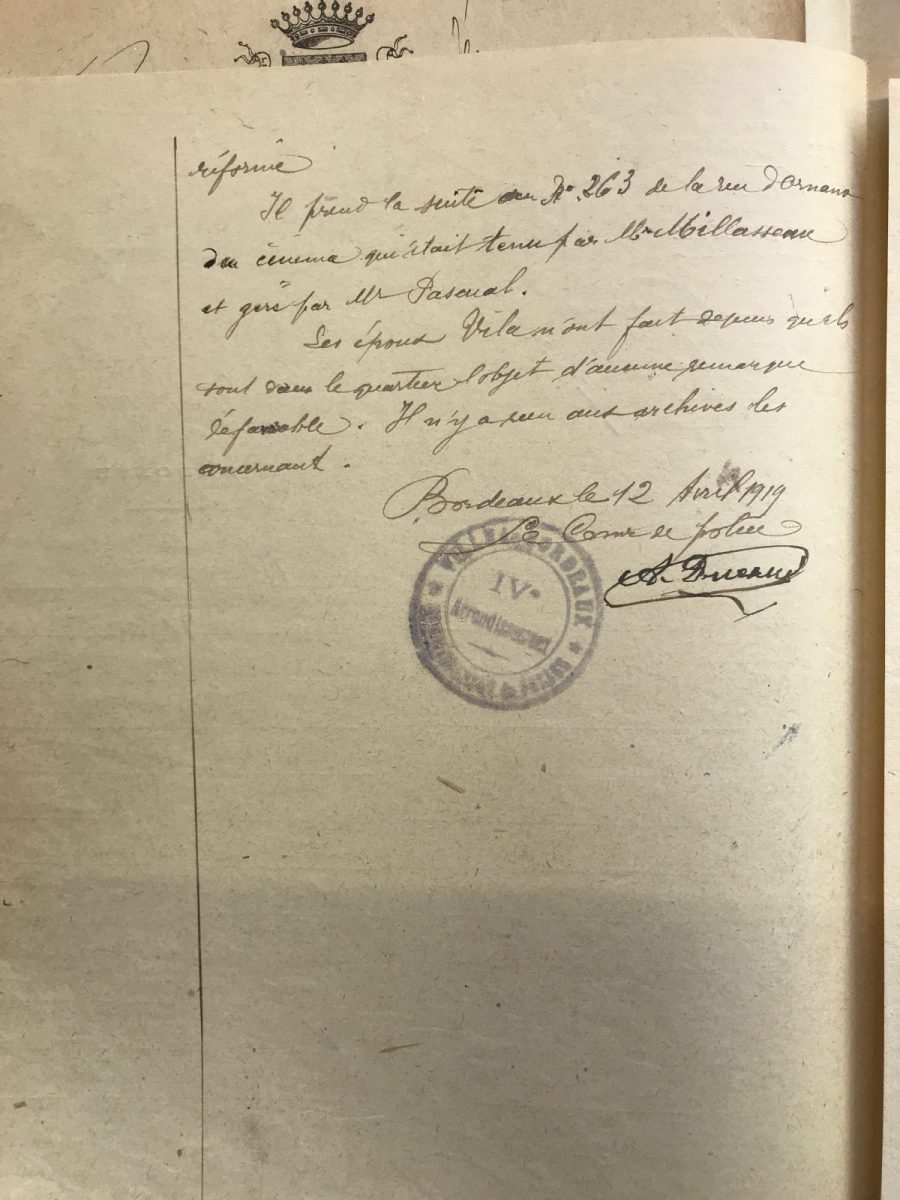 réformé
Il prend la suite au No. 263 de la rue d'Ornano
du cinéma qui était tenu par Mr Millasseau
et géré par Mr Pascual.
Les époux Vila n'ont fait depuis qu'ils
sont dans le quartier l'objet d'aucune remarque
défavorable. Il n'y a rien aux archives les
concernant.
Bordeaux le 12 Avril 1919
Le Comre de police
VILLE DE BORDEAUX
IVe
Arrondissement